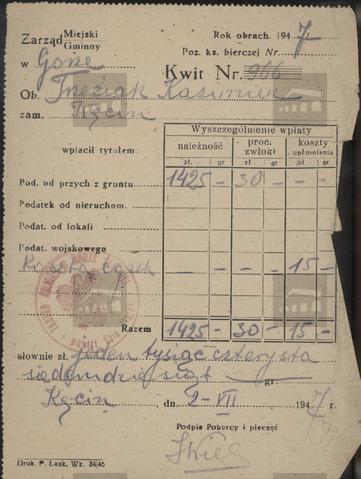 Zarząd Miejski Gminny
Rok obrach. 1947
Poz. ks. bierczej Nr.
w
Kwit Nr. 966
Ob. Trzeciak Kazimierz
zam. Kęcin
Wyszczególnienie wpłaty
wpłacił tytułem:
należność proc. zwłoki koszty upomnienia
zł. gr zł gr zł. gr
Pod. od przych z gruntu 1425 - 30 - -
Podatek od nieruchom.
Podat. od lokali
Podat. wojskowego
- - 15 -
Razem 1425 - 30 - 15 -
słownie zł. jeden tysiąc czterysta
siedemdziesiąt gr.
Kęcin dn. 2-VII 1947 r.
Podpis Poborcy i pieczęć
Druk. P. Łask, Wz. 34/45